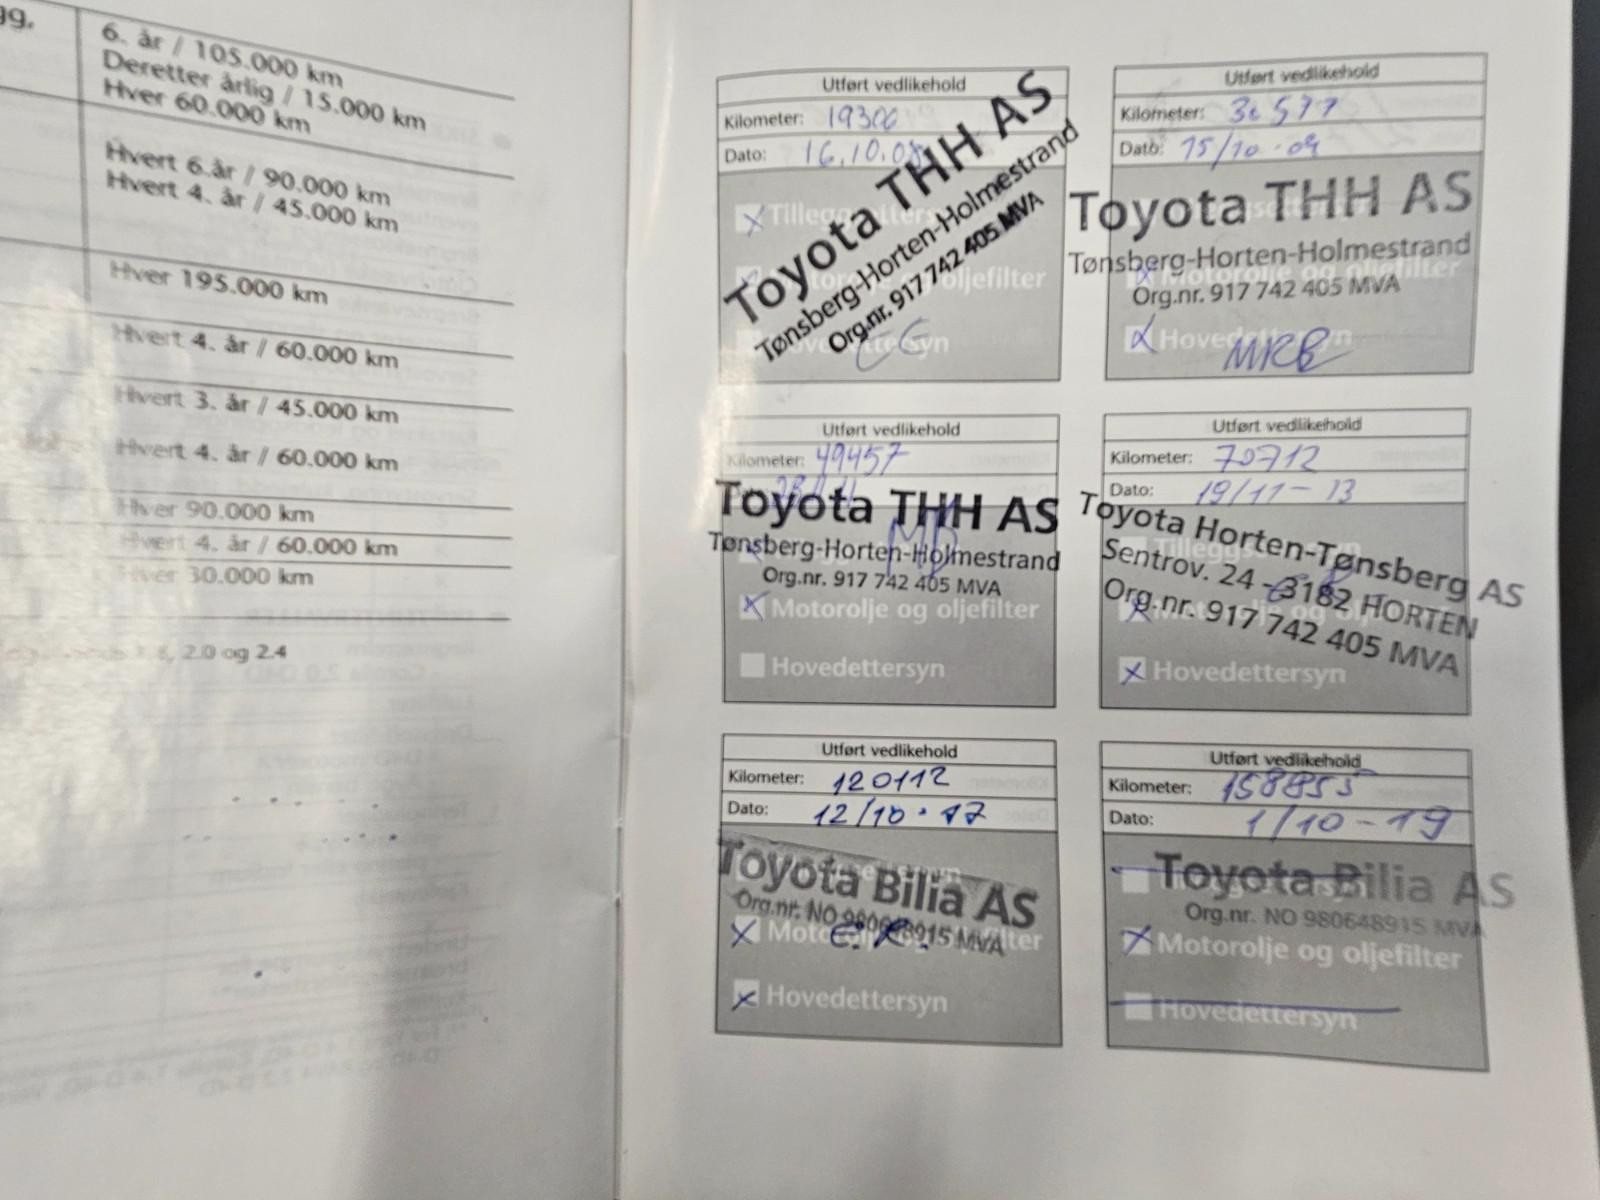 gg.
6. år / 105.000 km
Deretter årlig / 15.000 km
Hver 60.000 km
Hvert 6.år / 90.000 km
Hvert 4. år / 45.000 km
Hver 195.000 km
Hvert 4. år / 60.000 km
Hvert 3. år / 45.000 km
Hvert 4. år / 60.000 km
Hver 90.000 km
Hvert 4. år / 60.000 km
Hver 30.000 km
2.0 og 2.4
Utført vedlikehold
Kilometer: 19300
Dato: 16.10.08
Toyota THH AS
Tønsberg-Horten-Holmestrand
Org.nr. 917 742 405 MVA
Utført vedlikehold
Kilometer:
Dato: 15/10-09
Toyota THH AS
Tønsberg-Horten-Holmestrand
Motorolje og oljefilter
Org.nr. 917 742 405 MVA
Hovedettersyn
MRB
Utført vedlikehold
Kilometer: 49457
Toyota THH AS
Tønsberg-Horten-Holmestrand
Org.nr. 917 742 405 MVA
Motorolje og oljefilter
Hovedettersyn
Utført vedlikehold
Kilometer: 70712
Dato: 19/11-13
Toyota Horten-Tønsberg AS
Sentrov. 24 - 3182 HORTEN
Org.nr. 917 742 405 MVA
Hovedettersyn
Utført vedlikehold
Kilometer: 120112
Dato: 12/10.17
Toyota Bilia AS
Org.nr. NO 980648915 MVA
Motorolje og oljefilter
E.R.
Hovedettersyn
Utført vedlikehold
Kilometer: 158855
Dato: 1/10-19
Toyota Bilia AS
Org.nr. NO 980648915 MVA
Motorolje og oljefilter
Hovedettersyn